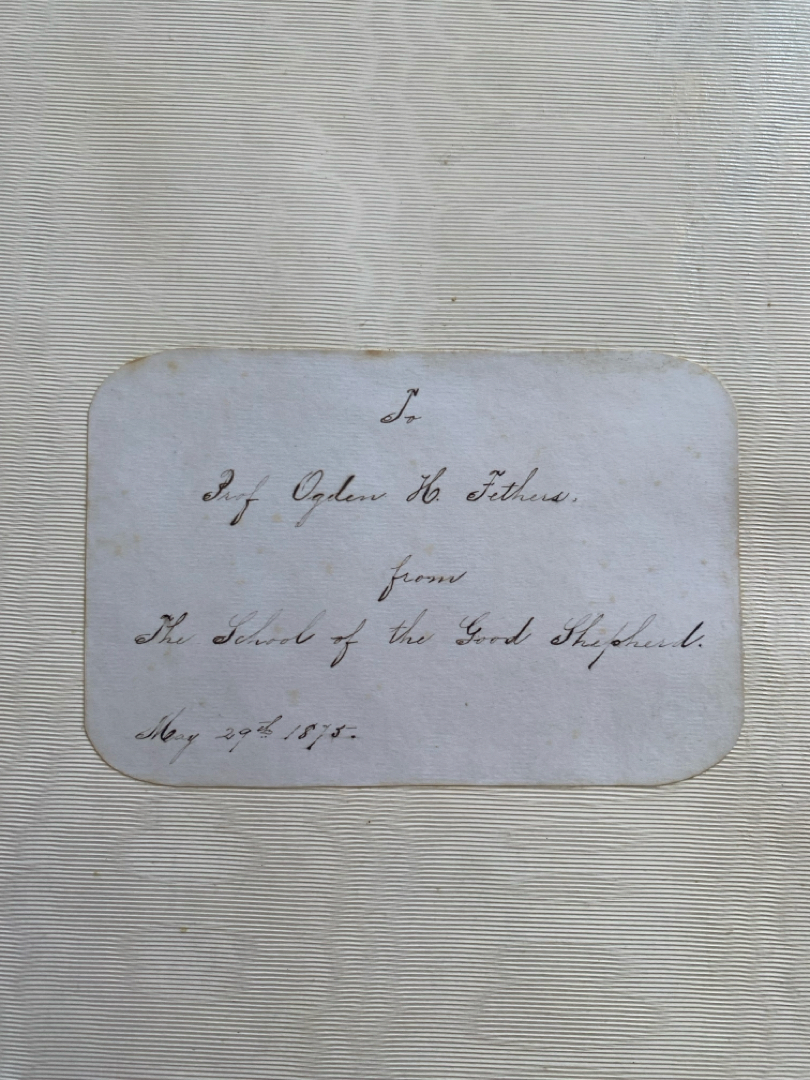 To
Prof Ogden H. Fethers.
from
The School of the Good Shepherd.
May 29th 1875.